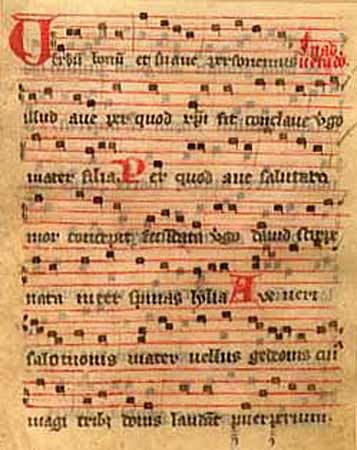 Verbū bonū et suave personemus In ad
illud ave per quod xp̄i fit conclave virgo
mater filia. Per quod ave salutata
mox concepit fecundata virgo david stirpe
nata inter spinas lylia Ave veri
salomonis mater vellus gedeonis cui
magi tribꝫ donis laudāt puerperium.